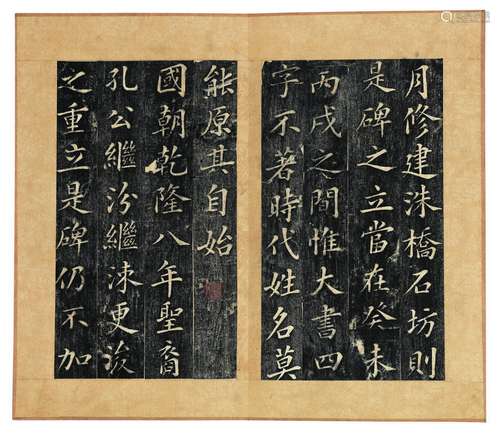 月修建洙橋石坊則
是碑之立當在癸未
丙戌之間惟大書四
字不著時代姓名莫
能原其自始
國朝乾隆八年聖裔
孔公繼汾繼涑更浚
之重立是碑仍不加